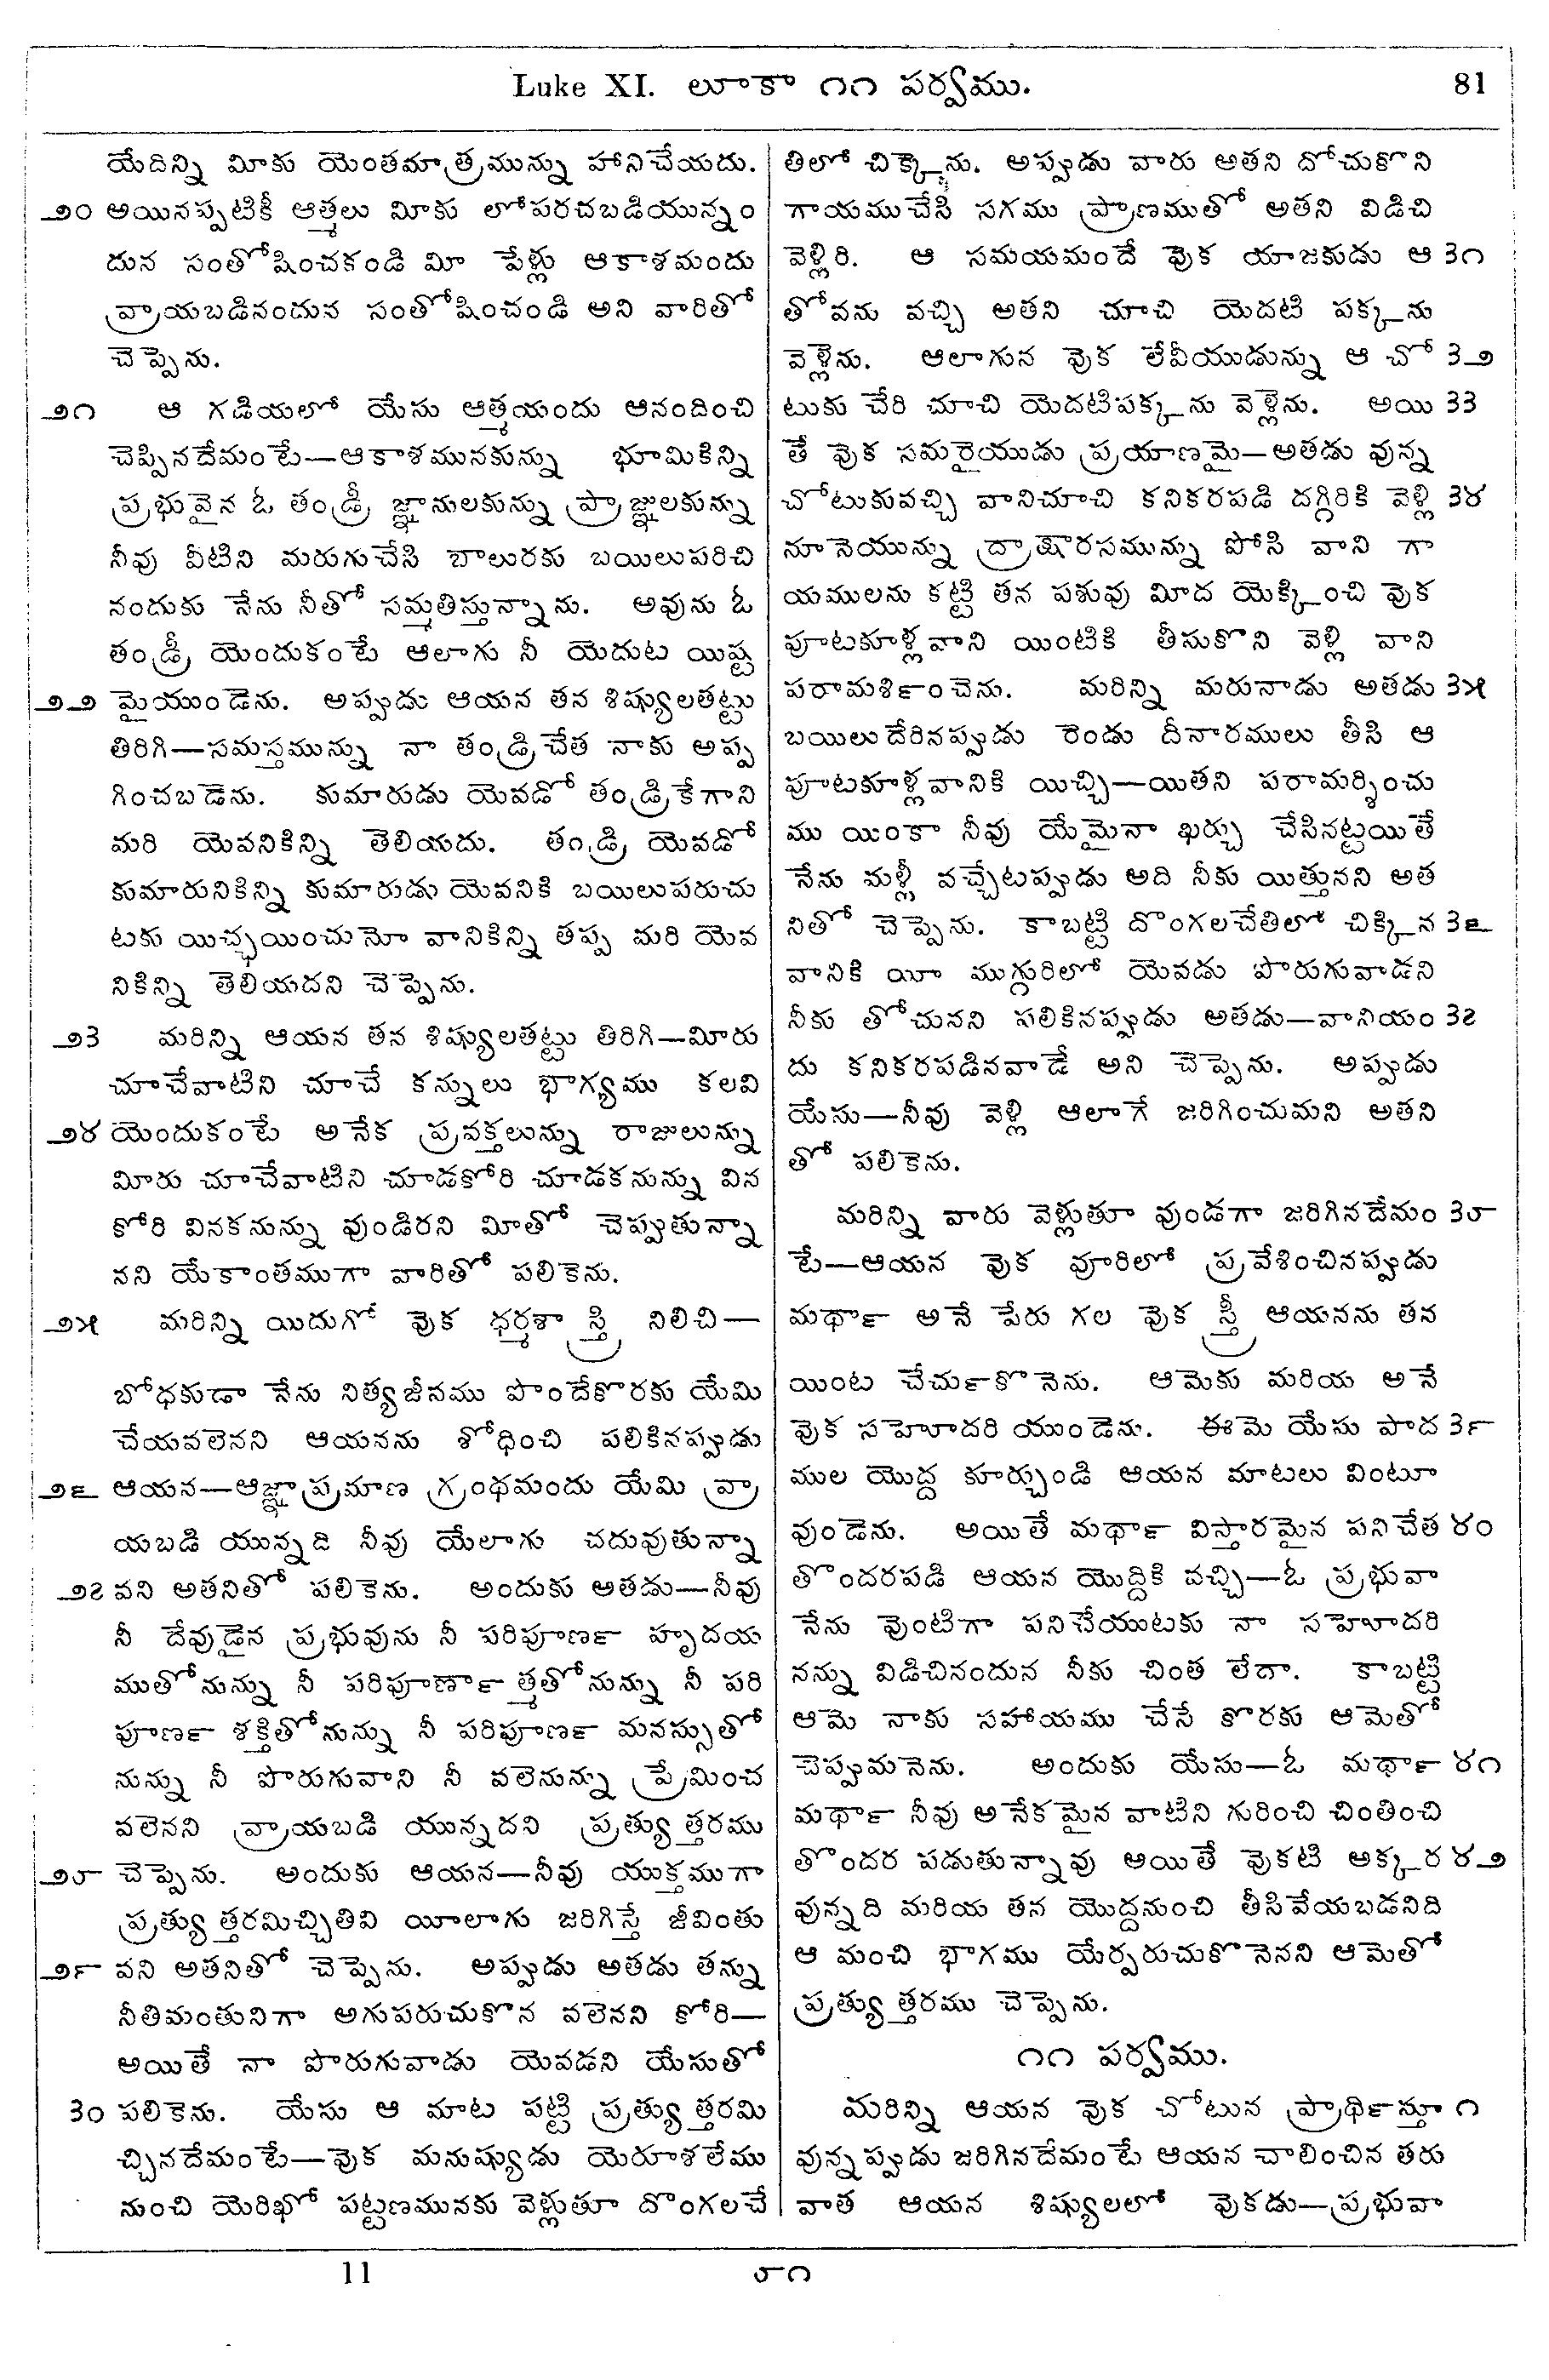 Luke XI. లూకా ౧౧ పర్వము.
81
యేదిన్ని మీకు యెంతమాత్రమున్ను హానిచేయదు.
౨౦ అయినప్పటికీ ఆత్మలు మీకు లోపరచబడియున్నం
దున సంతోషించకండి మీ పేళ్లు ఆకాశమందు
వ్రాయబడినందున సంతోషించండి అని వారితో
చెప్పెను.
౨౧ ఆ గడియలో యేసు ఆత్మయందు ఆనందించి
చెప్పినదేమంటే—ఆకాశమునకున్ను భూమికిన్ని
ప్రభువైన ఓ తండ్రీ జ్ఞానులకున్ను ప్రాజ్ఞులకున్ను
నీవు వీటిని మరుగుచేసి బాలురకు బయిలుపరిచి
నందుకు నేను నీతో సమ్మతిస్తున్నాను. అవును ఓ
తండ్రీ యెందుకంటే ఆలాగు నీ యెదుట యిష్ట
౨౨ మైయుండెను. అప్పుడు ఆయన తన శిష్యులతట్టు
తిరిగి—సమస్తమున్ను నా తండ్రిచేత నాకు అప్ప
గించబడెను. కుమారుడు యెవడో తండ్రికేగాని
మరి యెవనికిన్ని తెలియదు. తండ్రి యెవడో
కుమారునికిన్ని కుమారుడు యెవనికి బయిలుపరుచు
టకు యిచ్ఛయించునో వానికిన్ని తప్ప మరి యెవ
నికిన్ని తెలియదని చెప్పెను.
౨౩ మరిన్ని ఆయన తన శిష్యులతట్టు తిరిగి—మీరు
చూచేవాటిని చూచే కన్నులు భాగ్యము కలవి
౨౪ యెందుకంటే అనేక ప్రవక్తలున్ను రాజులున్ను
మీరు చూచేవాటిని చూడకోరి చూడకనున్ను విన
కోరి వినకనున్ను వుండిరని మీతో చెప్పుతున్నా
నని యేకాంతముగా వారితో పలికెను.
౨౫ మరిన్ని యిదుగో వొక ధర్మశాస్త్రి నిలిచి—
బోధకుడా నేను నిత్యజీనము పొందేకొరకు యేమి
చేయవలెనని ఆయనను శోధించి పలికినప్పుడు
౨౬ ఆయన—ఆజ్ఞాప్రమాణ గ్రంథమందు యేమి వ్రా
యబడి యున్నది నీవు యేలాగు చదువుతున్నా
౨౭ వని అతనితో పలికెను. అందుకు అతడు—నీవు
నీ దేవుడైన ప్రభువును నీ పరిపూణ౯ హృదయ
ముతోనున్ను నీ పరిపూణా౯త్మతోనున్ను నీ పరి
పూణ౯ శక్తితోనున్ను నీ పరిపూణ౯ మనస్సుతో
నున్ను నీ పొరుగువాని నీ వలెనున్ను ప్రేమించ
వలెనని వ్రాయబడి యున్నదని ప్రత్యుత్తరము
౨౮ చెప్పెను. అందుకు ఆయన—నీవు యుక్తముగా
ప్రత్యుత్తరమిచ్చితివి యీలాగు జరిగిస్తే జీవింతు
౨౯ వని అతనితో చెప్పెను. అప్పుడు అతడు తన్ను
నీతిమంతునిగా అగుపరుచుకొన వలెనని కోరి—
అయితే నా పొరుగువాడు యెవడని యేసుతో
౩౦ పలికెను. యేసు ఆ మాట పట్టి ప్రత్యుత్తరమి
చ్చినదేమంటే—వొక మనుష్యుడు యెరూశలేము
నుంచి యెరిఖో పట్టణమునకు వెళ్లుతూ దొంగలచే
తిలో చిక్కెను. అప్పుడు వారు అతని దోచుకొని
గాయముచేసి సగము ప్రాణముతో అతని విడిచి
వెళ్లిరి. ఆ సమయమందే వొక యాజకుడు ఆ ౩౧
తోవను వచ్చి అతని చూచి యెదటి పక్కను
వెళ్లెను. ఆలాగున వొక లేవీయుడున్ను ఆ చో ౩౨
టుకు చేరి చూచి యెదటిపక్కను వెళ్లెను. అయి ౩౩
తే వొక సమరైయుడు ప్రయాణమై—అతడు వున్న
చోటుకువచ్చి వానిచూచి కనికరపడి దగ్గిరికి వెళ్లి ౩౪
నూనెయున్ను ద్రాక్షారసమున్ను పోసి వాని గా
యములను కట్టి తన పశువు మీద యెక్కించి వొక
పూటకూళ్లవాని యింటికి తీసుకొని వెళ్లి వాని
పరామశి౯ంచెను. మరిన్ని మరునాడు అతడు ౩౫
బయిలుదేరినప్పుడు రెండు దీనారములు తీసి ఆ
పూటకూళ్లవానికి యిచ్చి—యితని పరామర్శించు
ము యింకా నీవు యేమైనా ఖర్చు చేసినట్టయితే
నేను మళ్లీ వచ్చేటప్పుడు అది నీకు యిత్తునని అత
నితో చెప్పెను. కాబట్టి దొంగలచేతిలో చిక్కిన ౩౬
వానికి యీ ముగ్గురిలో యెవడు పొరుగువాడని
నీకు తోచునని పలికినప్పుడు అతడు—వానియం ౩౭
దు కనికరపడినవాడే అని చెప్పెను. అప్పుడు
యేసు—నీవు వెళ్లి ఆలాగే జరిగించుమని అతని
తో పలికెను.
మరిన్ని వారు వెళ్లుతూ వుండగా జరిగినదేమం ౩౮
టే—ఆయన వొక వూరిలో ప్రవేశించినప్పుడు
మథా౯ అనే పేరు గల వొక స్త్రీ ఆయనను తన
యింట చేచు౯కొనెను. ఆమెకు మరియ అనే
వొక సహెూదరి యుండెను. ఈమె యేసు పాద ౩౯
ముల యొద్ద కూర్చుండి ఆయన మాటలు వింటూ
వుండెను. అయితే మథా౯ విస్తారమైన పనిచేత ౪౦
తొందరపడి ఆయన యొద్దికి వచ్చి—ఓ ప్రభువా
నేను వొంటిగా పనిచేయుటకు నా సహెూదరి
నన్ను విడిచినందున నీకు చింత లేదా. కాబట్టి
ఆమె నాకు సహాయము చేసే కొరకు ఆమెతో
చెప్పుమనెను. అందుకు యేసు—ఓ మథా౯ ౪౧
మథా౯ నీవు అనేకమైన వాటిని గురించి చింతించి
తొందర పడుతున్నావు అయితే వొకటి అక్కర ౪౨
వున్నది మరియ తన యొద్దనుంచి తీసివేయబడనిది
ఆ మంచి భాగము యేర్పరుచుకొనెనని ఆమెతో
ప్రత్యుత్తరము చెప్పెను.
౧౧ పర్వము.
మరిన్ని ఆయన వొక చోటున ప్రాథి౯స్తూ ౧
వున్నప్పుడు జరిగినదేమంటే ఆయన చాలించిన తరు
వాత ఆయన శిష్యులలో వొకడు—ప్రభువా
11
౮౧